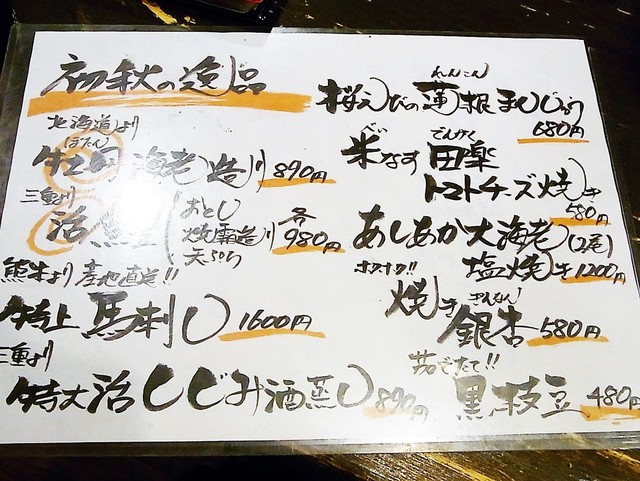 初秋の逸品
北海道より
ぼたん
牡丹海老造り 890円
三重より
活鱧
おとし
炊霜造り
天ぷら
各980円
熊本より産地直送!!
特上馬刺し 1600円
三重より
特大活しじみ酒蒸し 890円
れんこん
桜えびの蓮根まんじゅう
680円
べい でんがく
米なす田楽
トマトチーズ焼き
580円
あしあか大海老(2尾)
塩焼き 1200円
ホクホク!!
ぎんなん
焼き銀杏 580円
茹でたて!!
黒枝豆 480円